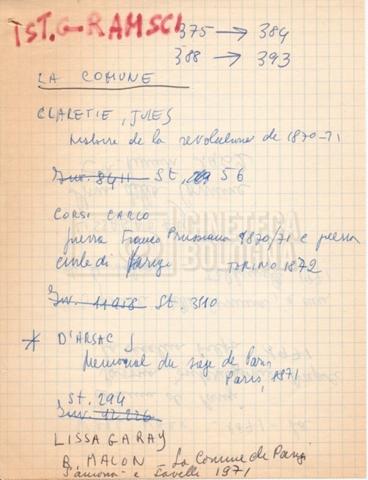 IST. GRAMSCI 375 → 384
388 → 393
LA COMUNE
CLARETIE, JULES
histoire de la revolution de 1870-71
Inv. 8411 St. 56
CORSI CARLO
guerra Franco Prussiana 1870/71 e guerra
civile di Parigi TORINO 1872
Inv. 11958 St. 3510
* D'ARSAC J
Memorial du siege de Paris
Paris, 1871
St. 294
Inv. 12226
LISSAGARAY
B. MALON La Comune de Parigi
Samonà e Savelli 1971
CINETECA
BOLOGNA